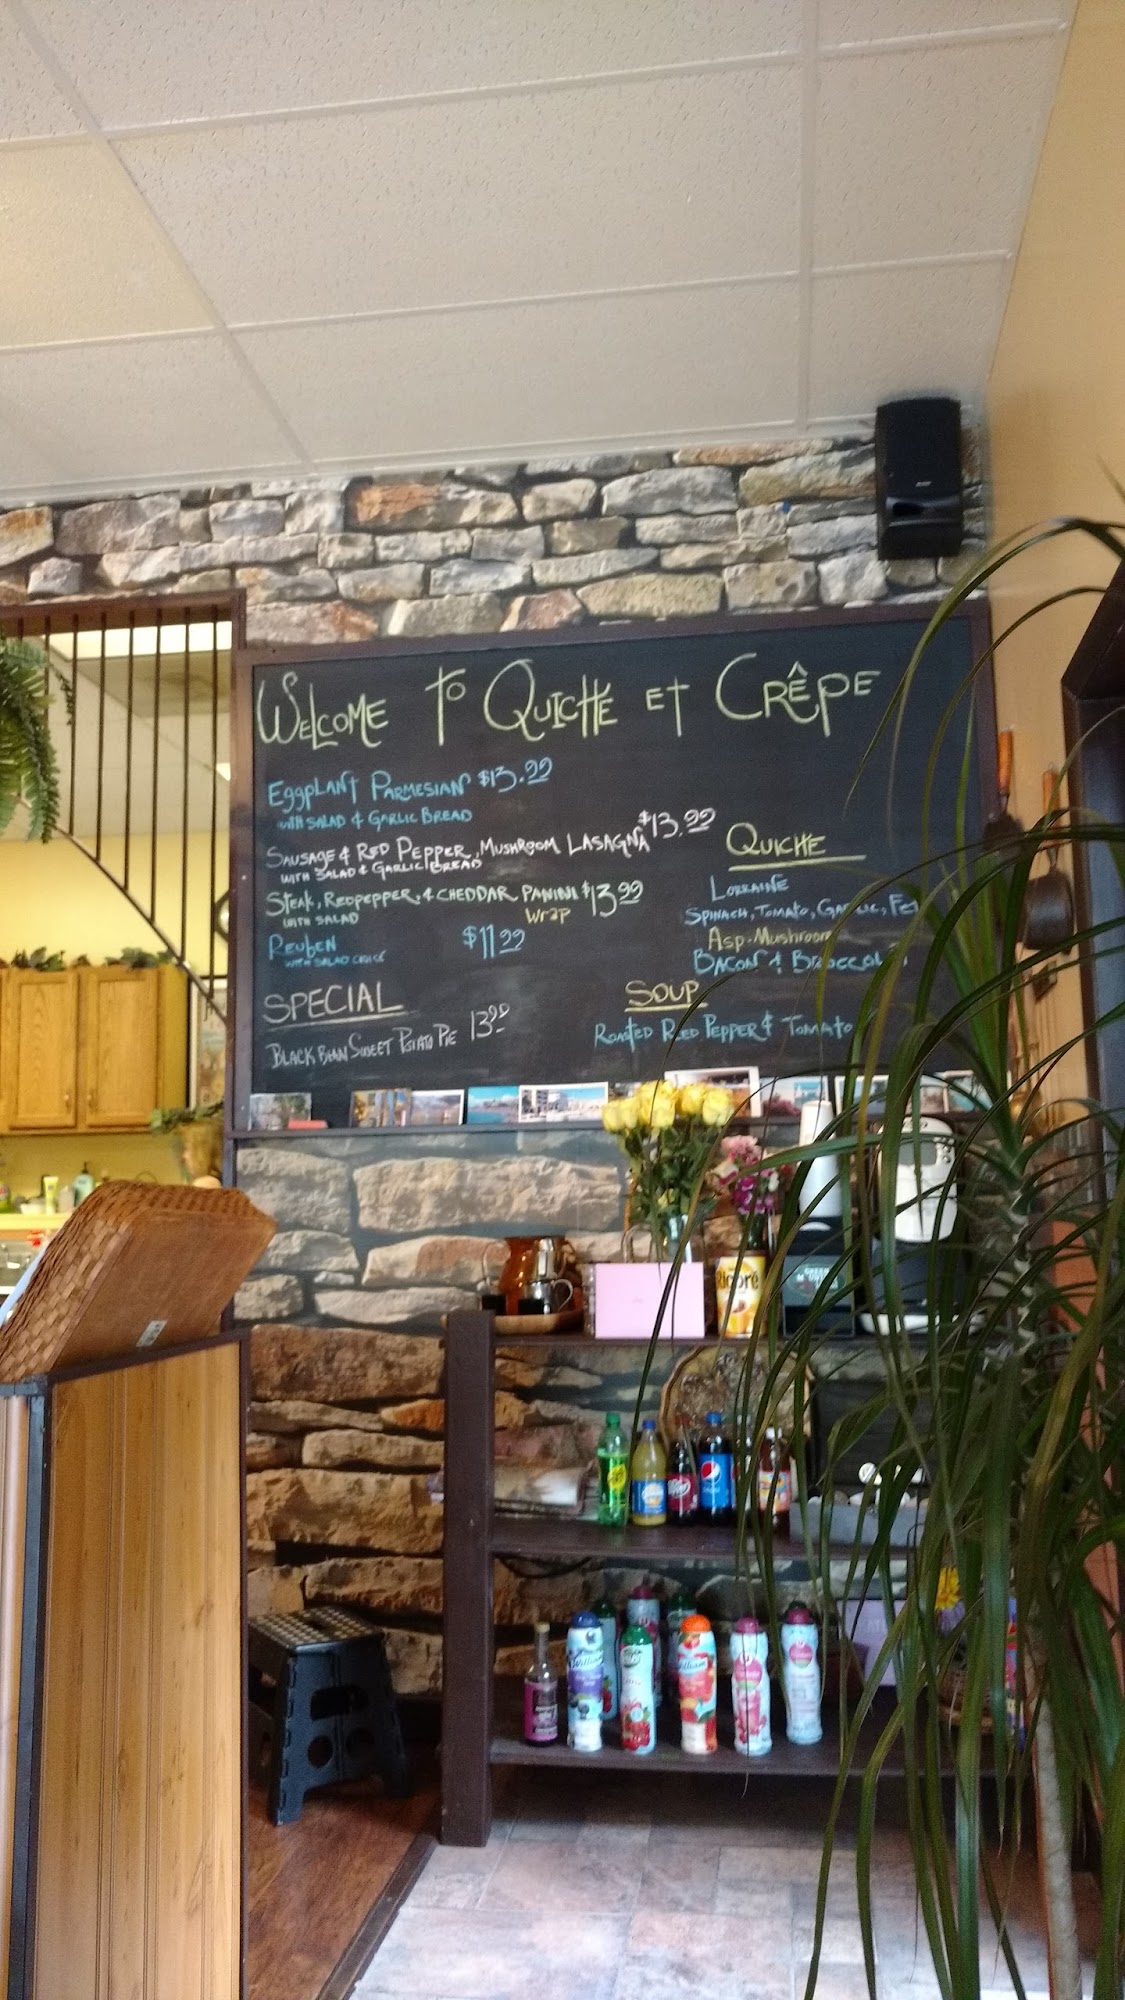 WELCOME TO QUICHE ET CRÊPE
EGGPLANT PARMESIAN $13.99
WITH SALAD & GARLIC BREAD
SAUSAGE & RED PEPPER, MUSHROOM LASAGNA $13.99
WITH SALAD & GARLIC BREAD
STEAK, RED PEPPER, & CHEDDAR PANINI $13.99
WITH SALAD
Wrap
REUBEN $11.99
WITH SALAD
SPECIAL
BLACK BEAN SWEET POTATO PIE 13.99
QUICHE
LORRAINE
SPINACH, TOMATO, GARLIC,
ASP. MUSHROOM
BACON & BROCCOLI
SOUP
ROASTED RED PEPPER & TOMATO
Ricoré
GREEN MOUNTAIN
pepsi